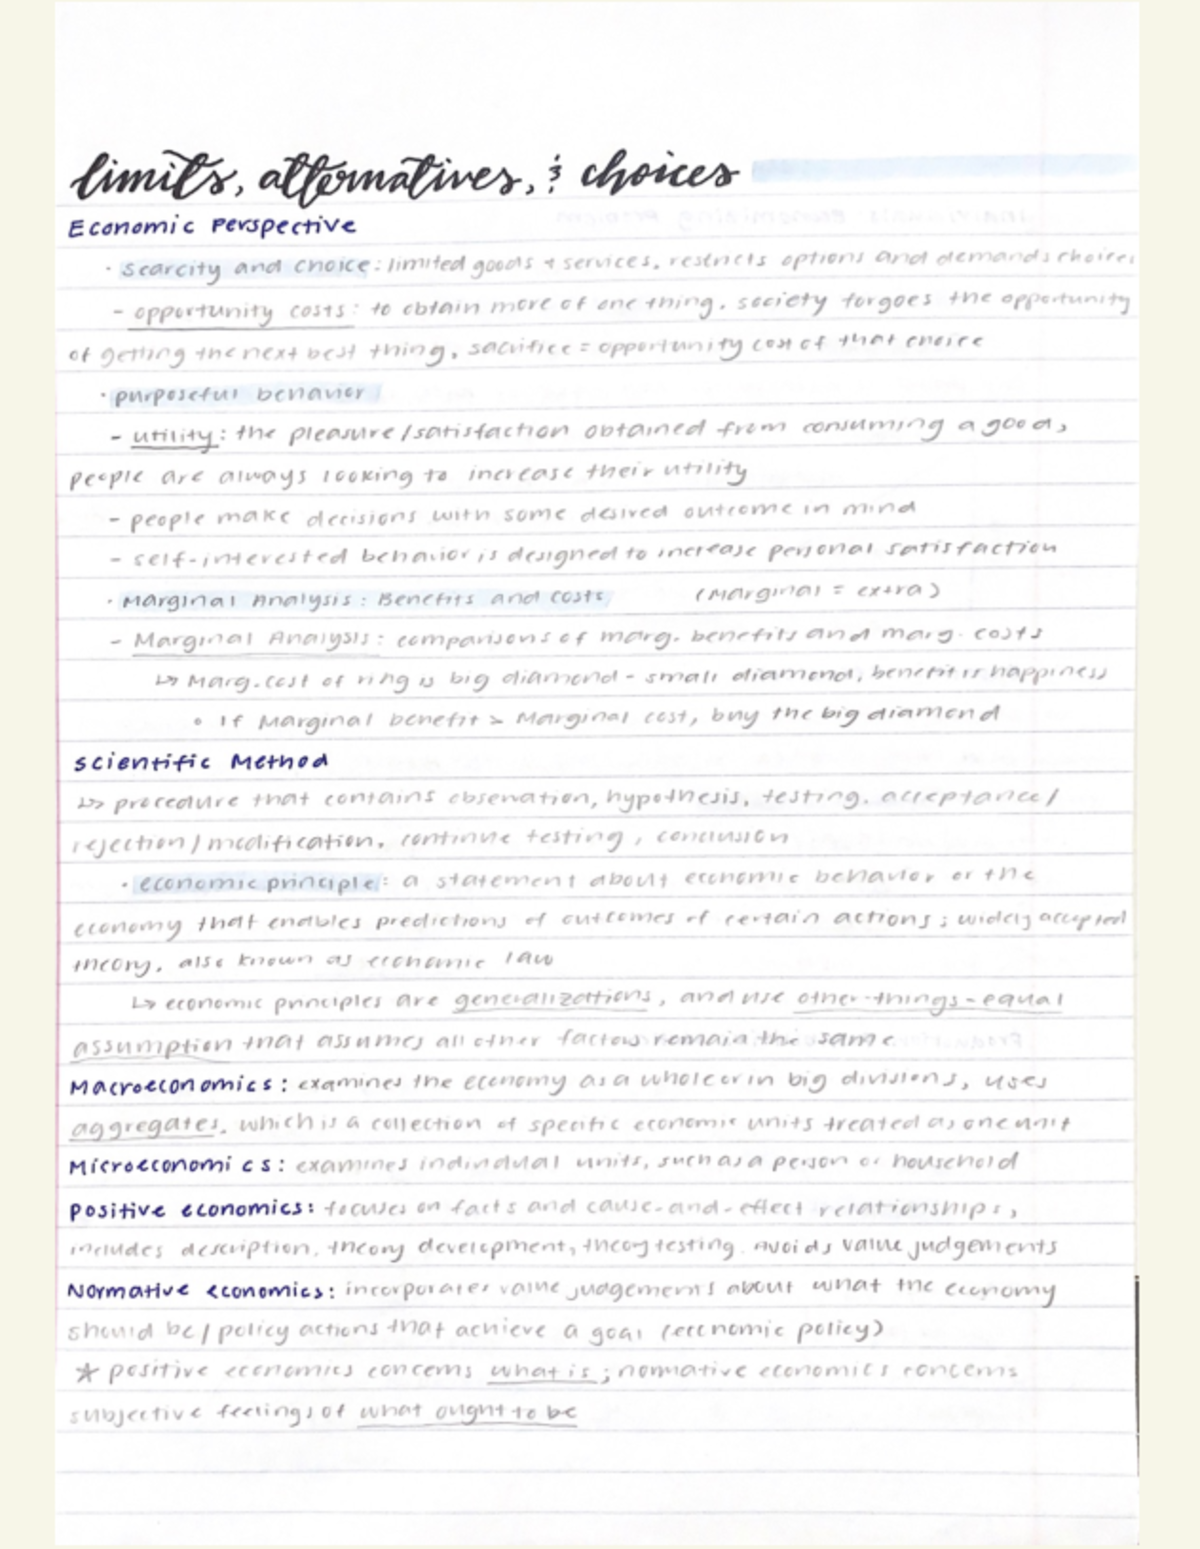 limits, alternatives, & choices
Economic Perspective
· scarcity and choice: limited goods + services, restricts options and demands choices
- opportunity costs: to obtain more of one thing, society forgoes the opportunity
of getting the next best thing, sacrifice = opportunity cost of that choice
· purposeful behavior
- utility: the pleasure/satisfaction obtained from consuming a good,
people are always looking to increase their utility
- people make decisions with some desired outcome in mind
- self-interested behavior is designed to increase personal satisfaction
· Marginal Analysis: Benefits and costs (Marginal = extra)
- Marginal Analysis: comparisons of marg. benefits and marg. costs
↳ Marg. cost of ring is big diamond - small diamond, benefit is happiness
∘ If Marginal benefit > Marginal cost, buy the big diamond
Scientific Method
↳ procedure that contains observation, hypothesis, testing, acceptance/
rejection/modification, continue testing, conclusion
· economic principle: a statement about economic behavior or the
economy that enables predictions of outcomes of certain actions; widely accepted
theory, also known as economic law
↳ economic principles are generalizations, and use other-things-equal
assumption that assumes all other factors remain the same
Macroeconomics: examines the economy as a whole or in big divisions, uses
aggregates, which is a collection of specific economic units treated as one unit
Microeconomics: examines individual units, such as a person or household
Positive economics: focuses on facts and cause-and-effect relationships,
includes description, theory development, theory testing. Avoids value judgements
Normative economics: incorporates value judgements about what the economy
should be/policy actions that achieve a goal (economic policy)
★ positive economics concerns what is; normative economics concerns
subjective feelings of what ought to be